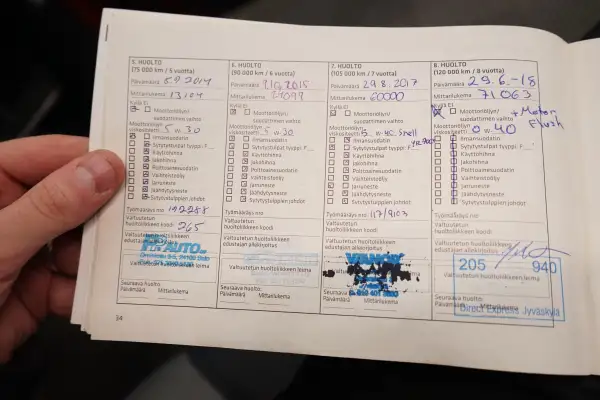 5. HUOLTO
(75 000 km / 5 vuotta)
Päivämäärä 5.9.2014
Mittarilukema 13104
Kyllä Ei
Moottoriöljyn/
suodattimen vaihto
Moottoriöljyn
viskositeetti 5 w 30
Ilmansuodatin
Sytytystulpat tyyppi F
Käyttöhihna
Jakohihna
Polttoainesuodatin
Vaihteistoöljy
Jarruneste
Jäähdytysneste
Sytytystulppien johdot
Työmääräys nro 192288
Valtuutetun
huoltoliikkeen koodi 265
Valtuutetun huoltoliikkeen
edustajan allekirjoitus
AUTO
Valtuutetun huoltoliikkeen leima
Seuraava huolto:
Päivämäärä Mittarilukema
6. HUOLTO
(90 000 km / 6 vuotta)
Päivämäärä
Mittarilukema
Kyllä Ei
Moottoriöljyn/
suodattimen vaihto
Moottoriöljyn
viskositeetti 5 w 30
Ilmansuodatin
Sytytystulpat tyyppi F
Käyttöhihna
Jakohihna
Polttoainesuodatin
Vaihteistoöljy
Jarruneste
Jäähdytysneste
Sytytystulppien johdot
Työmääräys nro
Valtuutetun
huoltoliikkeen koodi
Valtuutetun huoltoliikkeen
edustajan allekirjoitus
Valtuutetun huoltoliikkeen leima
Seuraava huolto:
Päivämäärä Mittarilukema
7. HUOLTO
(105 000 km / 7 vuotta)
Päivämäärä 29.8.2017
Mittarilukema 60000
Kyllä Ei
Moottoriöljyn/
suodattimen vaihto
Moottoriöljyn
viskositeetti 5 w-40 Shell
Ilmansuodatin
Sytytystulpat tyyppi F
Käyttöhihna
Jakohihna
Polttoainesuodatin
Vaihteistoöljy
Jarruneste
Jäähdytysneste
Sytytystulppien johdot
Työmääräys nro 117/9103
Valtuutetun
huoltoliikkeen koodi
Valtuutetun huoltoliikkeen
edustajan allekirjoitus
Seuraava
Päivämäärä Mittarilukema
8. HUOLTO
(120 000 km / 8 vuotta)
Päivämäärä 29.6.-18
Mittarilukema 71063
Kyllä Ei
Moottoriöljyn/
suodattimen vaihto
+ Motor
Flush
Moottoriöljyn
viskositeetti 0 w 40
Ilmansuodatin
Sytytystulpat tyyppi F
Käyttöhihna
Jakohihna
Polttoainesuodatin
Vaihteistoöljy
Jarruneste
Jäähdytysneste
Sytytystulppien johdot
Työmääräys nro
Valtuutetun
huoltoliikkeen koodi
Valtuutetun huoltoliikkeen
edustajan allekirjoitus
205 940
Valtuutetun huoltoliikkeen leima
Seuraava huolto:
Päivämäärä Mittarilukema
Direct Express Jyväskylä
54